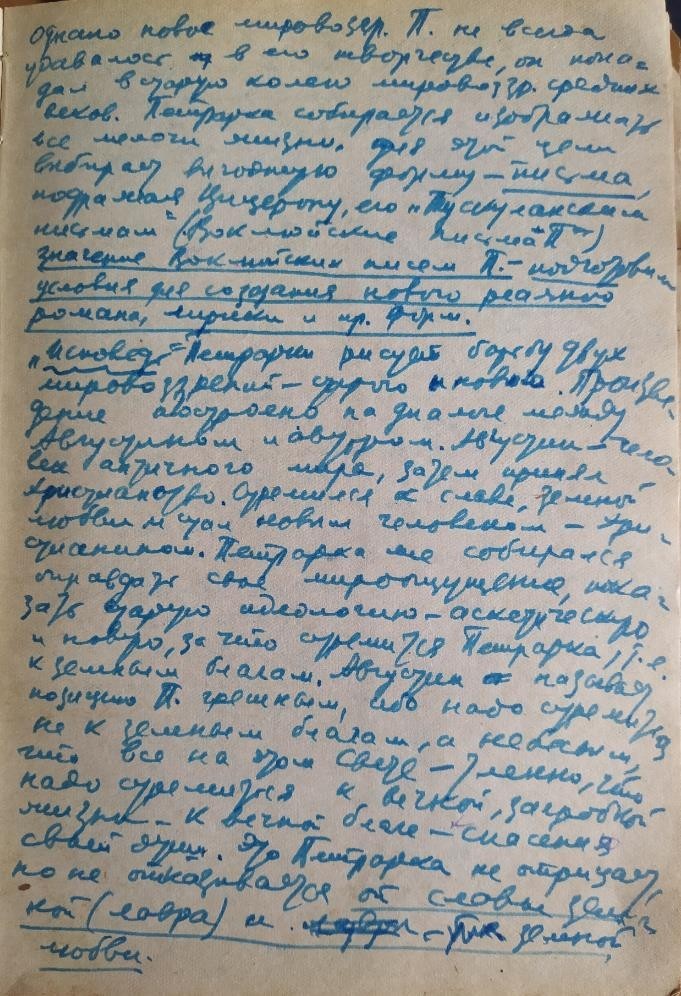 Однако новое мировоззр. П. не всегда
удавалось в его творчестве, он попа-
дал в старую колею мировоззр. средних
веков. Петрарка собирается изображать
все мелочи жизни. Для этой цели
выбирает выгодную форму – письма,
подражая Цицерону, его „Тускуланским
письмам" (Воклюйские письма" П–)
значение Воклюйских писем П. – подготовили
условия для создания нового реального
романа, лирики и пр. форм.
„Исповедь" Петрарки рисует борьбу двух
мировоззрений – старого и нового. Произве-
дение построено на диалоге между
Августином и автором. Августин – чело-
век античного мира, затем принял
христианство. Стремился к славе, земной
любви и стал новым человеком – хри-
стианином. Петрарка же собирался
оправдать свое мироощущение, пока-
зать старую идеологию – аскетическую
и новую, за что стремится Петрарка, т.е.
к земным благам. Августин называет
позицию П. грешным, ибо надо стремиться
не к земным благам, а небесным,
что все на этом свете – тленно, что
надо стремиться к вечной, загробной
жизни – к вечной благе – спасения
своей души. Это Петрарка не отрицает,
но не отказывается от славы зем-
ной (лавра) и – земной
любви.